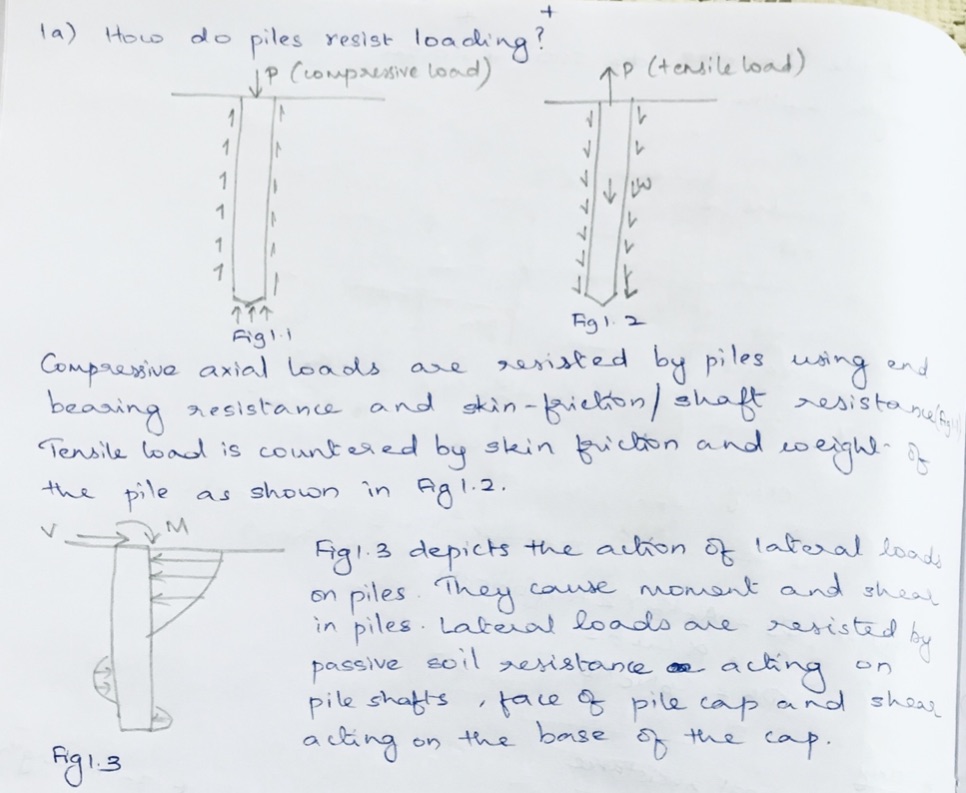 1a) How do piles resist loading?
+
P (compressive load)
P (tensile load)
W
Fig 1.1
Fig 1.2
Compressive axial loads are resisted by piles using end
bearing resistance and skin-friction/shaft resistance (Fig 1.1)
Tensile load is countered by skin friction and weight of
the pile as shown in Fig 1.2.
V
M
Fig 1.3 depicts the action of lateral loads
on piles. They cause moment and shear
in piles. Lateral loads are resisted by
passive soil resistance acting on
pile shafts, face of pile cap and shear
acting on the base of the cap.
Fig 1.3